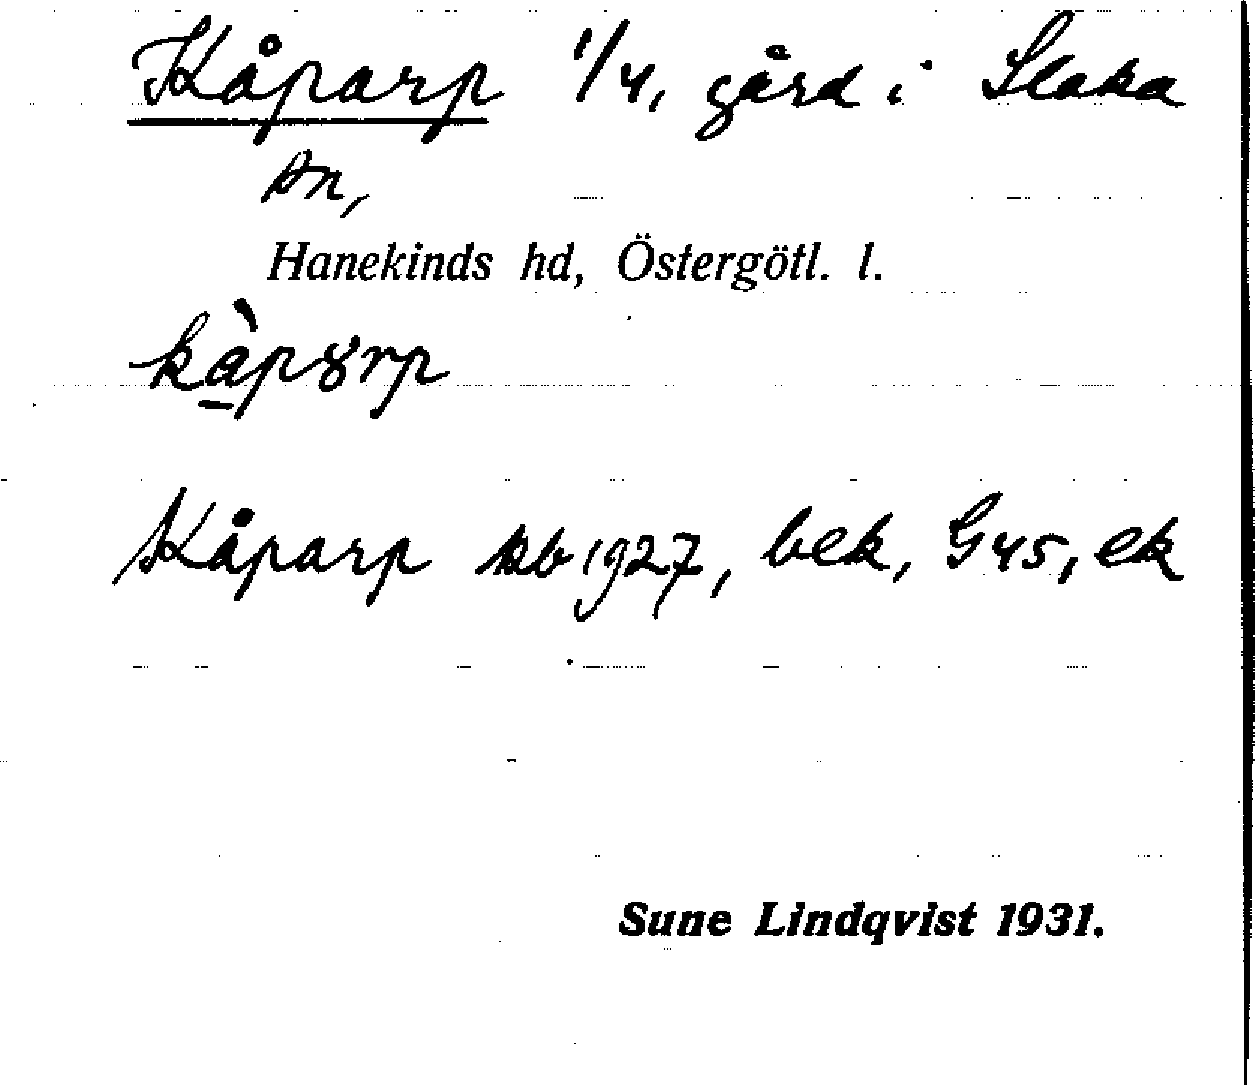 Kåparp 1/4, gård i Slaka
sn,
Hanekinds hd, Östergötl. l.
Kåparp kb 1927, bek, G45, ek
Sune Lindqvist 1931.